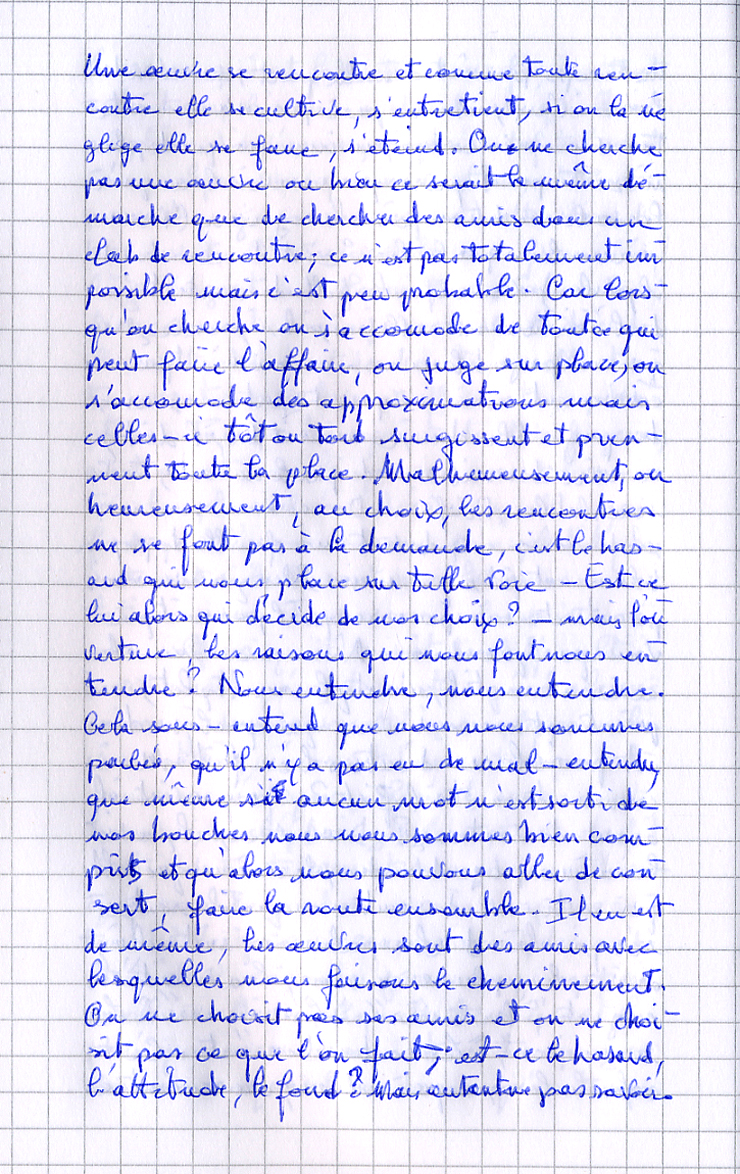 Une œuvre se rencontre et comme toute ren-
contre elle se cultive, s'entretient, si on la né
glige elle se fane, s'éteind. On ne cherche
pas une œuvre ou bien ce serait la même dé-
marche que de chercher des amis dans un
club de rencontre; ce n'est pas totalement im
possible mais c'est peu probable. Car lors-
qu'on cherche on s'accomode de tout ce qui
peut faire l'affaire, on juge sur place, on
s'accomode des approximations mais
celles-ci tôt ou tard surgissent et pren-
nent toute la place. Malheureusement, ou
heureusement, au choix, les rencontres
ne se font pas à la demande, c'est le has-
ard qui nous place sur telle voie - Est ce
lui alors qui décide de nos choix ? - mais l'ou
verture, les raisons qui nous font nous en
tendre ? Nous entendre, nous entendre.
Cela sous-entend que nous nous sommes
parlés, qu'il n'y a pas eu de mal-entendu,
que même si aucun mot n'est sorti de
nos bouches nous nous sommes bien com-
pris et qu'alors nous pouvons aller de con
sert, faire la route ensemble. Il en est
de même, les œuvres sont des amis avec
lesquelles nous faisons le cheminement.
On ne choisit pas ses amis et on ne choi-
sit pas ce que l'on fait; est-ce le hasard,
l'attitude, le fond ? Mais autant ne pas savoir.